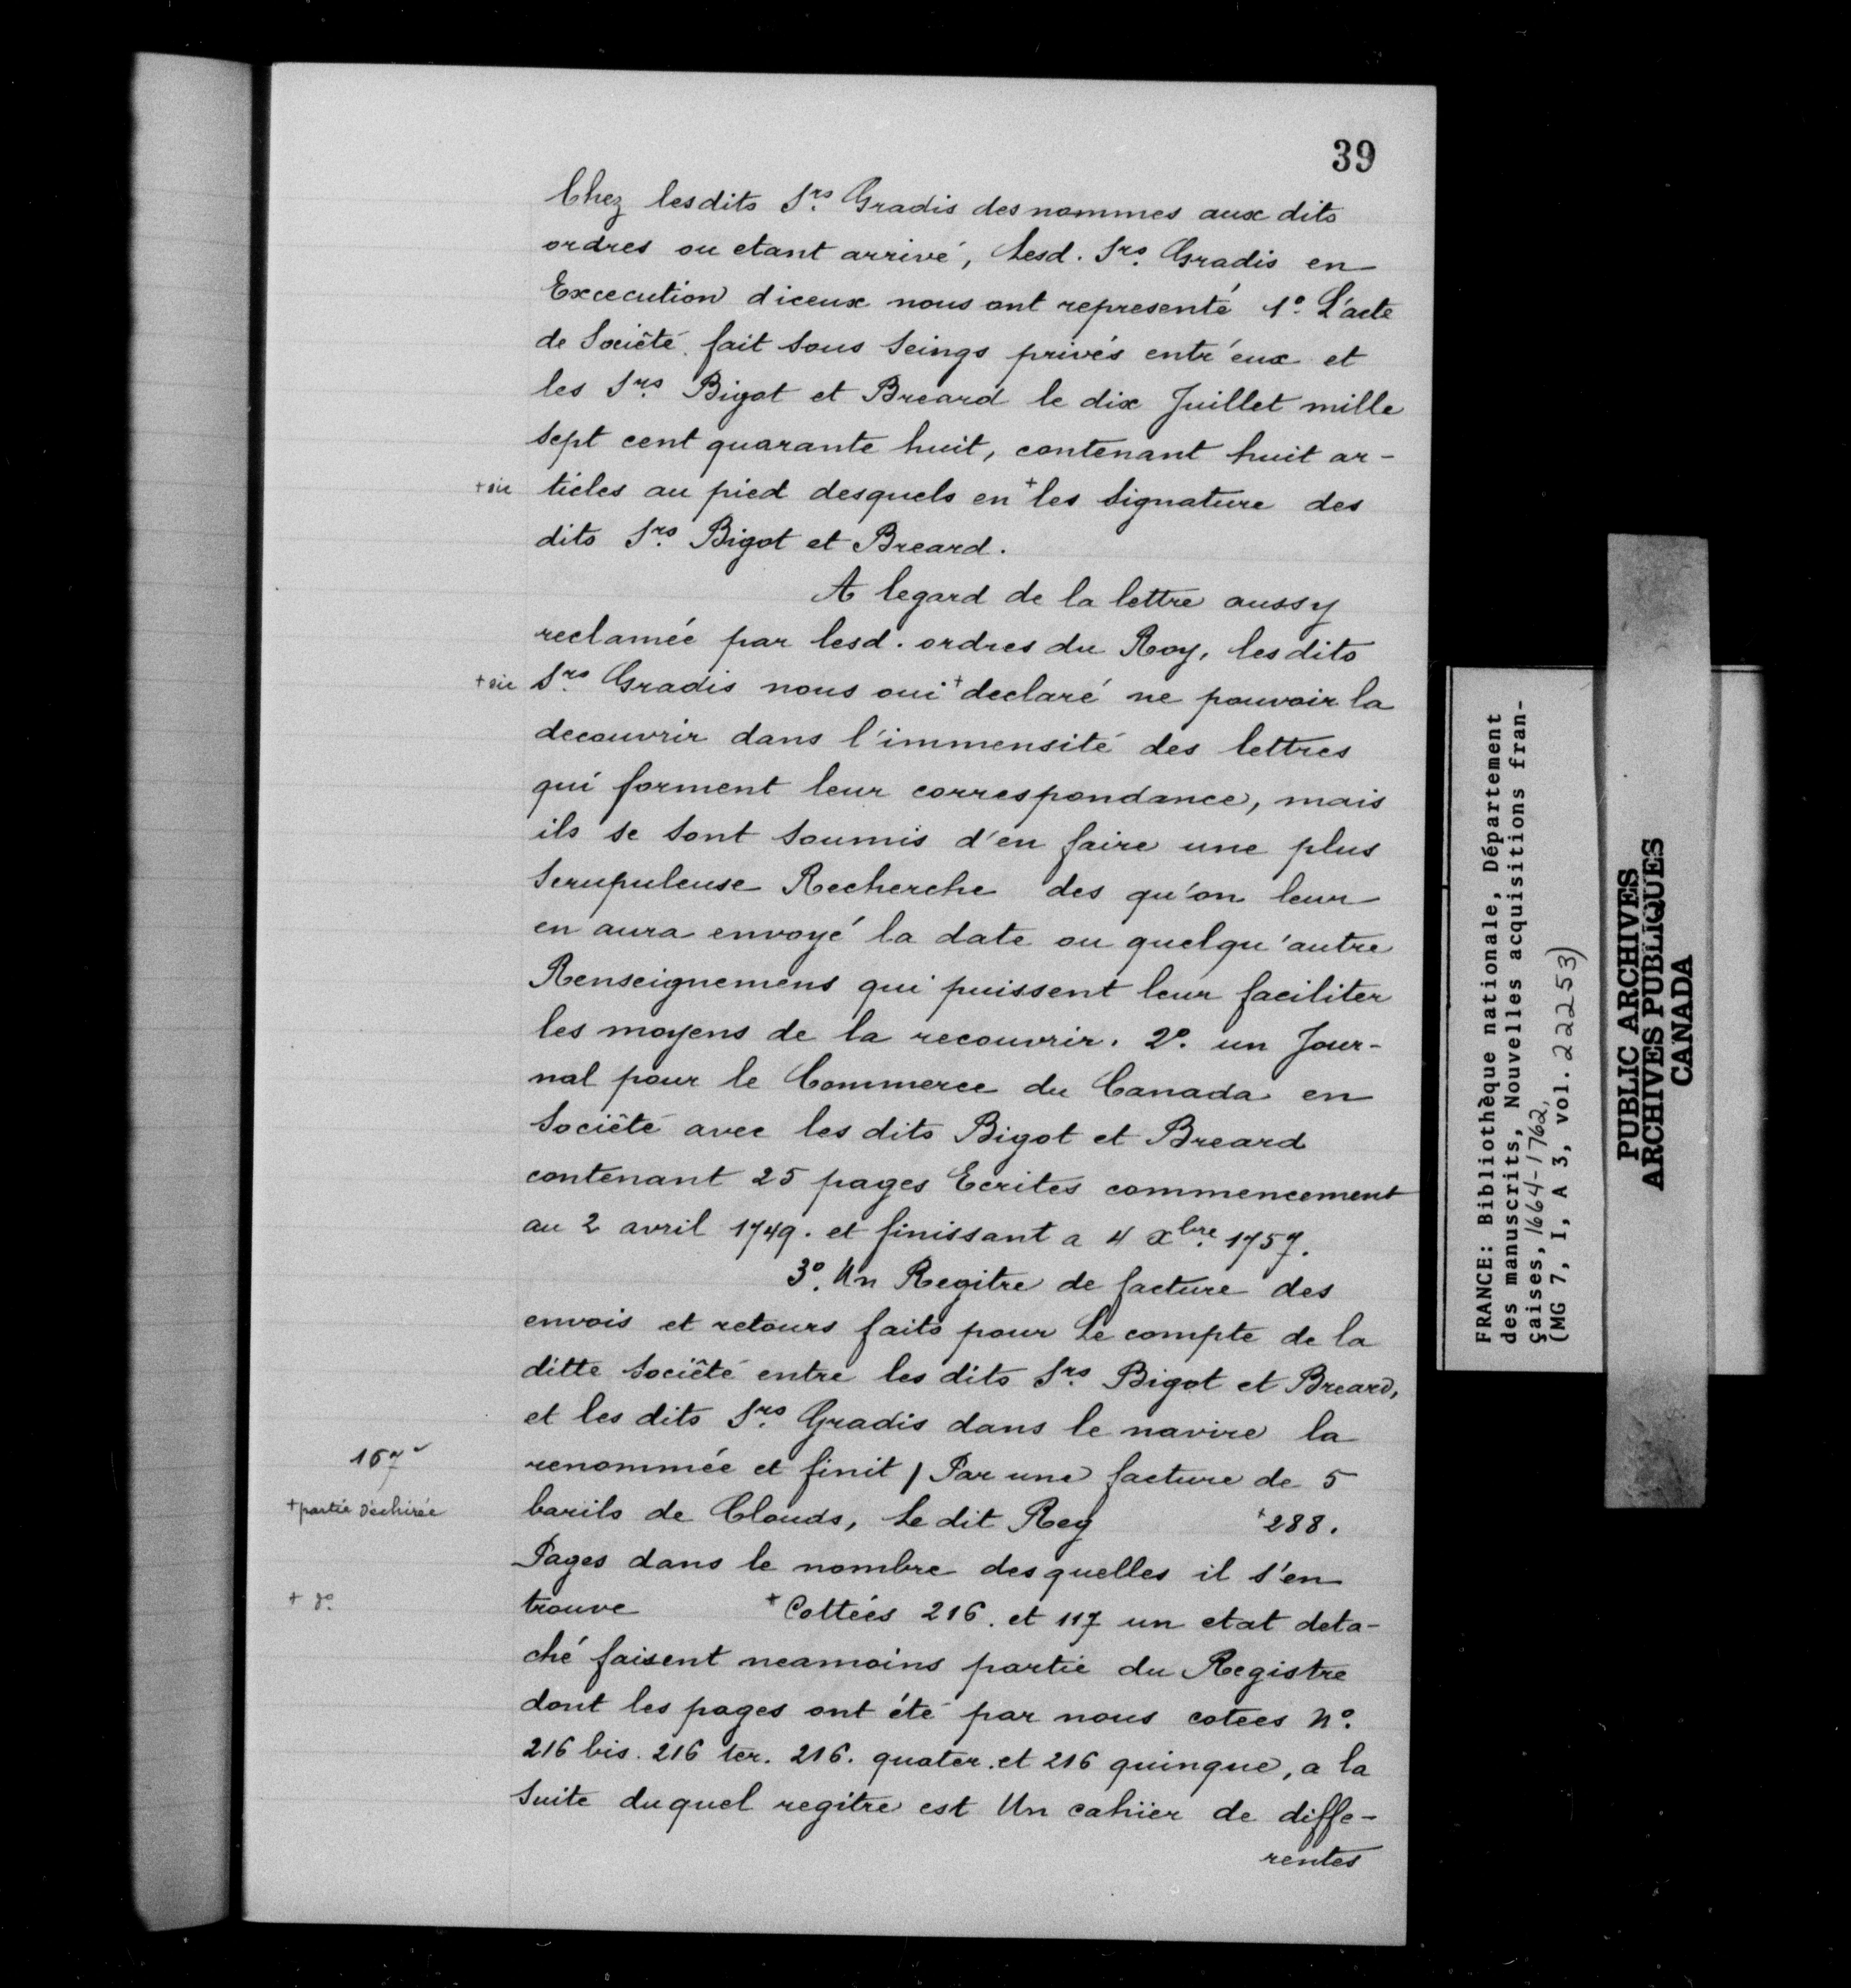 39
Chez lesdits Srs. Gradis des nommes aux dits
ordres ou etant arrivé, Lesd. Srs. Gradis en
Excecution diceux nous ont representé 1o. L'acte
de Sociêté fait sous Seings privés entr'eux et
les Srs. Bigot et Breard le dix Juillet mille
sept cent quarante huit, contenant huit ar-
+ sic ticles au pied desquels en + les signature des
dits Srs. Bigot et Breard.
A legard de la lettre aussy
reclamée par lesd. ordres du Roy, lesdits
+ sic Srs. Gradis nous oui + declaré ne pouvoir la
decouvrir dans l'immensité des lettres
qui forment leur correspondance, mais
ils se sont soumis d'en faire une plus
Scrupuleuse Recherche des qu'on leur
en aura envoyé la date ou quelqu'autre
Renseignemens qui puissent leur faciliter
les moyens de la recouvrir. 2o. un Jour-
nal pour le Commerce du Canada en
Sociêté avec les dits Bigot et Breard
contenant 25 pages Ecrites commencement
au 2 avril 1749. et finissant a 4 xbre. 1757.
3o. Un Regitre de facture des
envois et retours faits pour Le compte de la
ditte Sociêté entre les dits Srs. Bigot et Breard,
et les dits Srs. Gradis dans le navire la
167v renommée et finit / Par une facture de 5
+ partie déchirée barils de Clouds, Le dit Reg +288.
Pages dans le nombre desquelles il s'en
+ do. trouve + Cottées 216. et 117 un etat deta-
ché faisent neamoins partie du Registre
dont les pages ont été par nous cotees No.
216 bis. 216 ter. 216. quater. et 216 quinque, a la
Suite duquel regitre est Un cahier de diffe-
rentes
FRANCE: Bibliothèque nationale, Département
des manuscrits, Nouvelles acquisitions fran-
çaises, 1664-1762,
(MG 7, I, A 3, vol. 22253)
PUBLIC ARCHIVES
ARCHIVES PUBLIQUES
CANADA